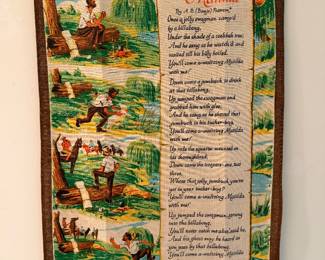 Matilda
By A. B. (Banjo) Paterson
Once a jolly swagman camp'd
by a billabong,
Under the shade of a coolibah tree,
And he sang as he watch'd it and
waited till his billy boiled,
You'll come a-waltzing Matilda
with me!
Down came a jumbuck to drink
at that billabong,
Up jumped the swagman and
grabbed him with glee,
And he sang as he shoved that
jumbuck in his tucker-bag,
You'll come a-waltzing Matilda
with me!
Up rode the squatter mounted on
his thoroughbred,
Down came the troopers-one, two
three,
Whose that jolly jumbuck you've
got in your tucker-bag?
You'll come a-waltzing Matilda
with me!
Up jumped the swagman, sprang
into the billabong,
You'll never catch me alive, said he,
And his ghost may be heard as
you pass by that billabong,
You'll come a-waltzing Matilda
with me!